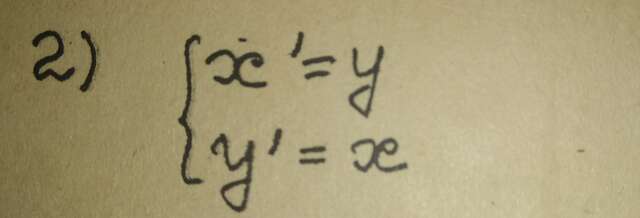 2) { x' = y
y' = x